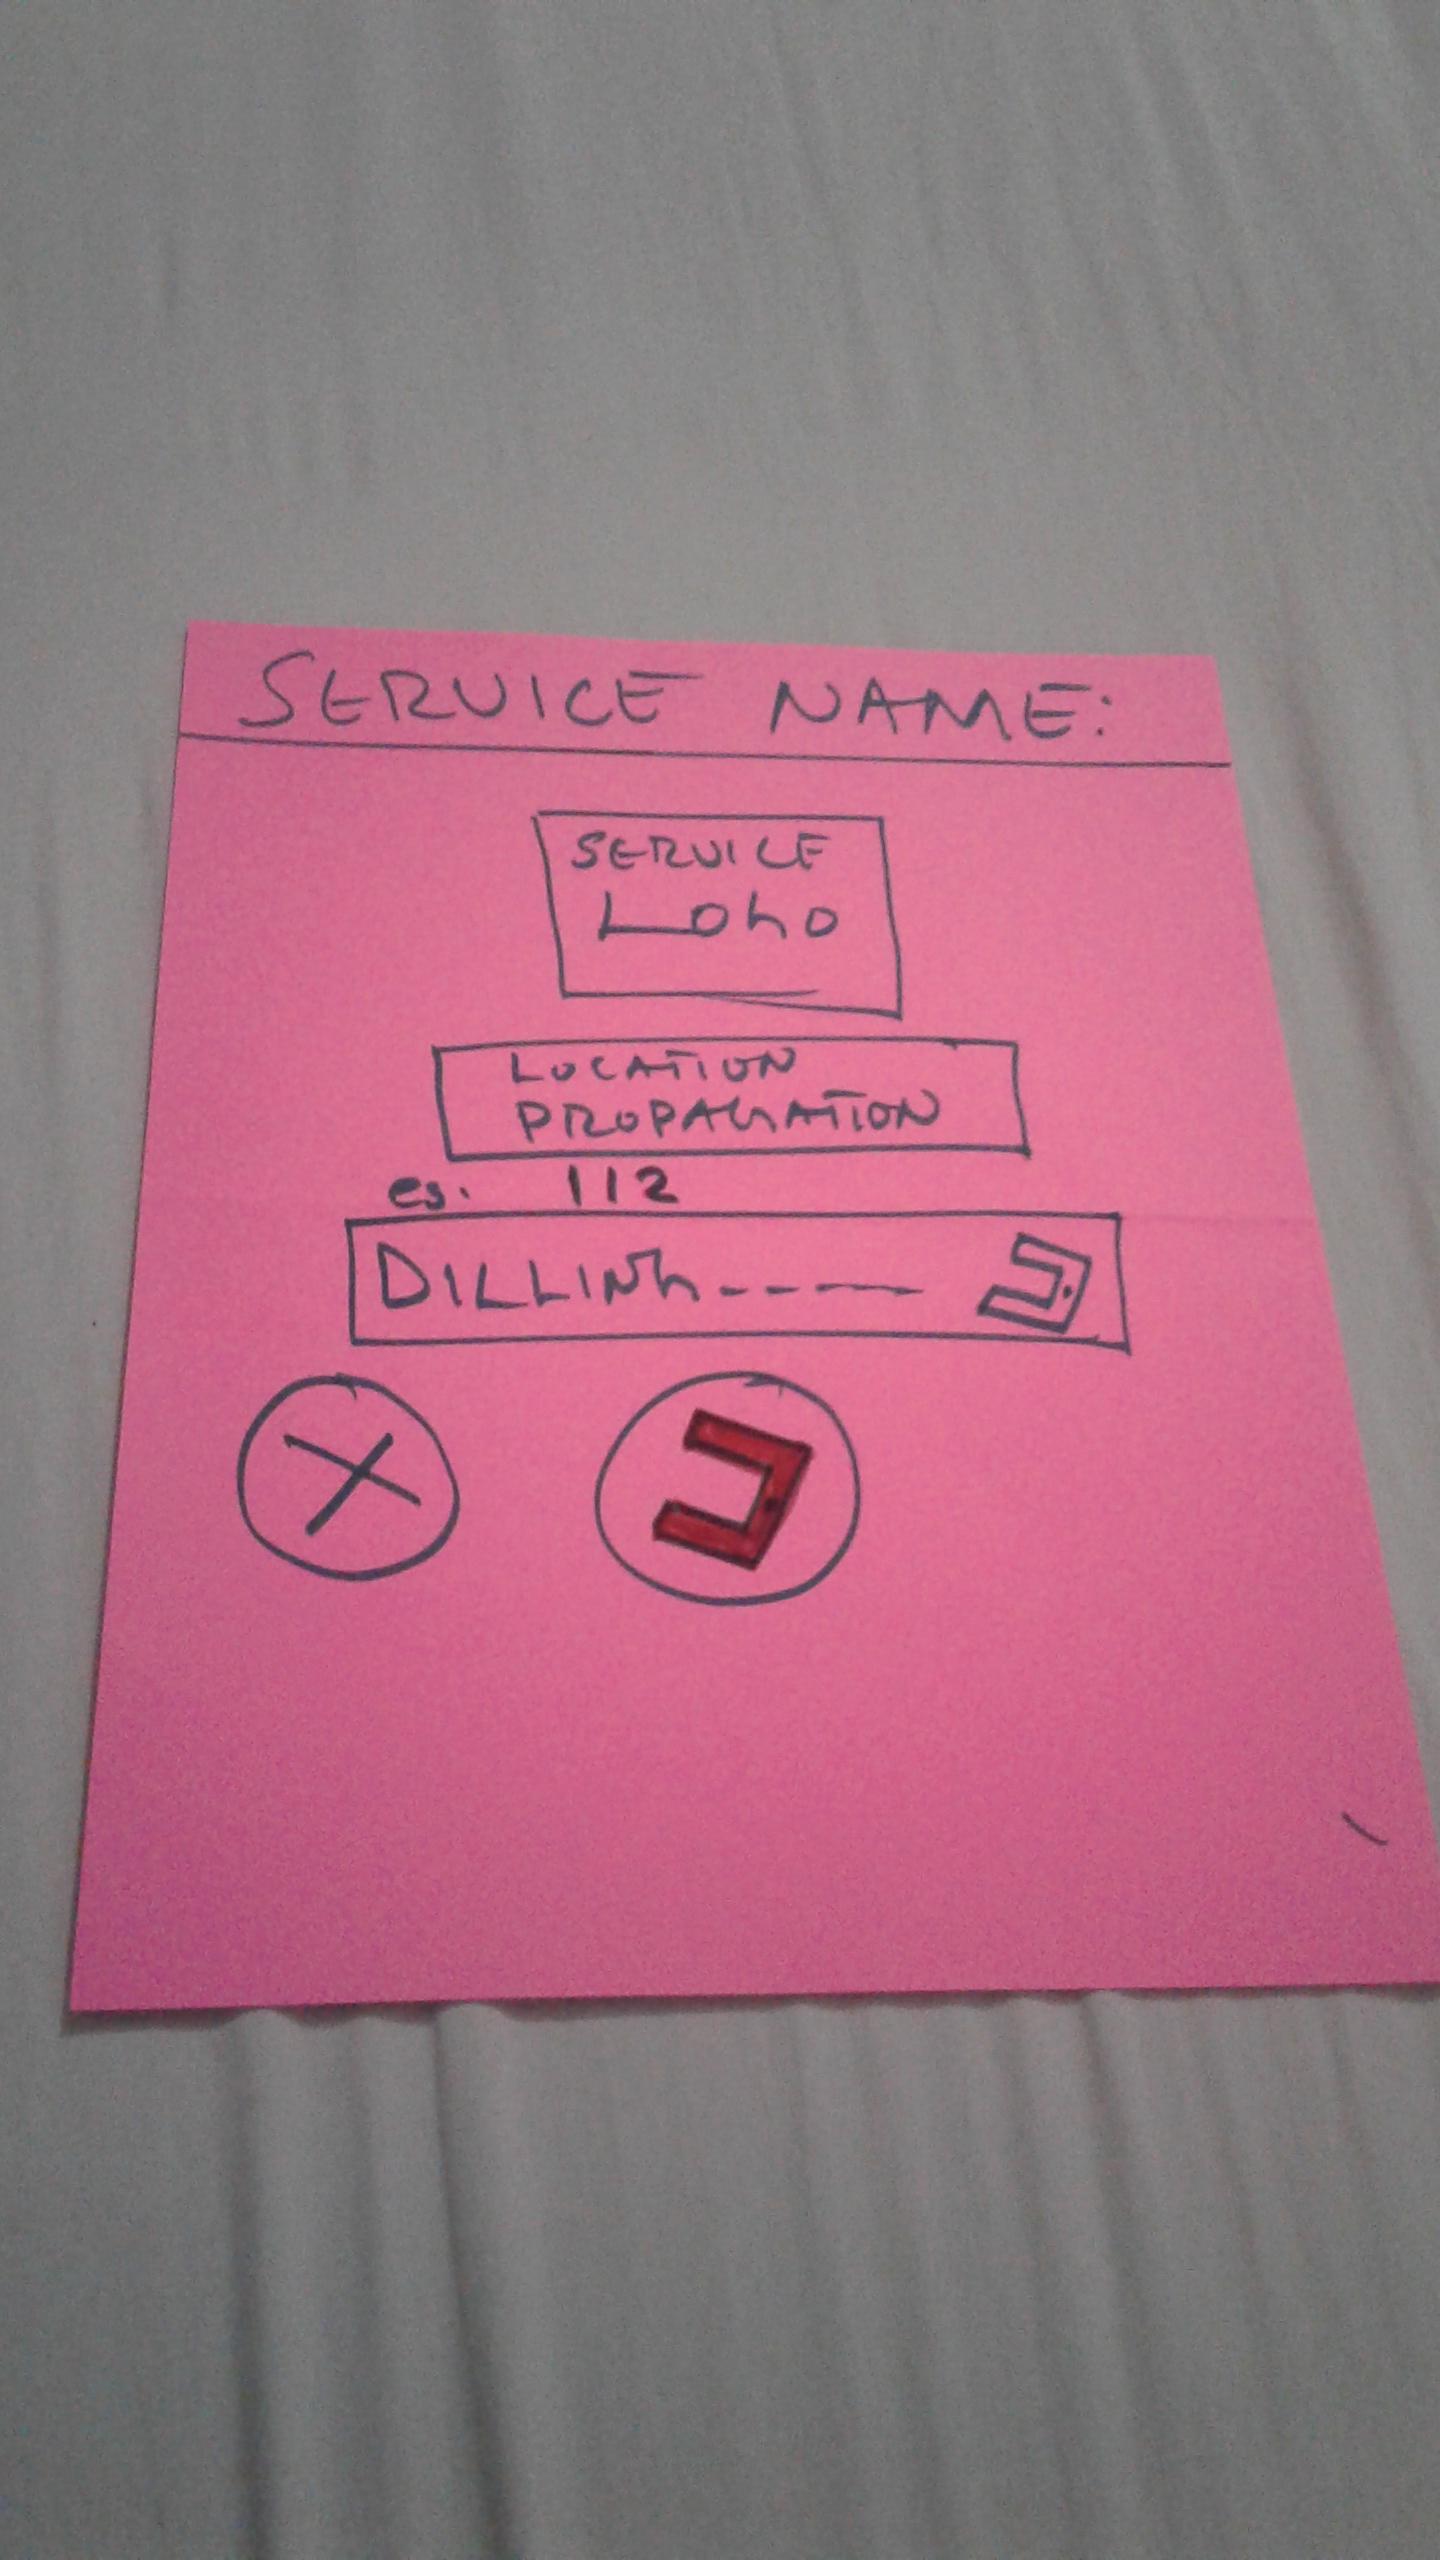 SERVICE NAME:
SERVICE
LOGO
LOCATION
PROPAGATION
es. 112
DILLING-----